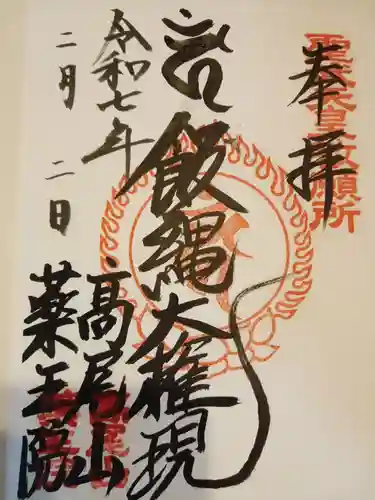 奉拝
聖武天皇勅願所
飯縄大権現
令和七年
二月二日
高尾山
薬王院